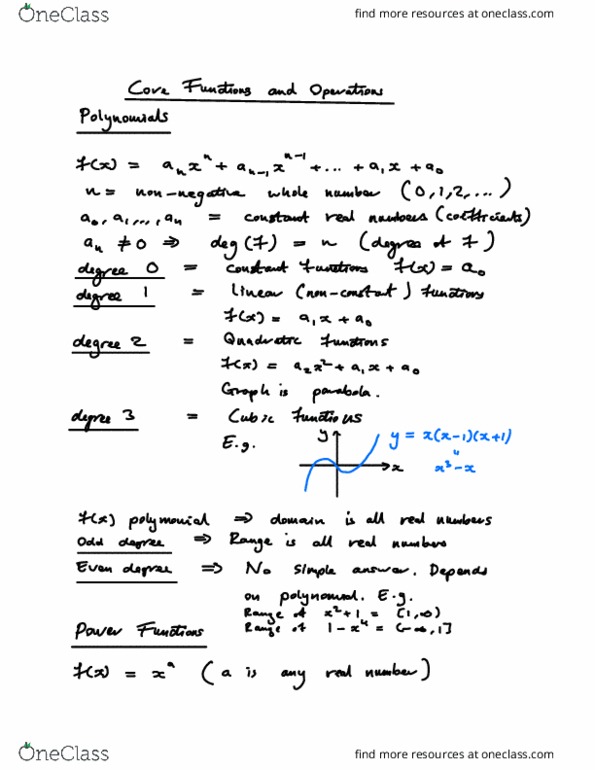 OneClass find more resources at oneclass.com
Core Functions and Operations
Polynomials
f(x) = aₙxⁿ + aₙ₋₁xⁿ⁻¹ + ... + a₁x + a₀
n = non-negative whole number (0,1,2,...)
a₀, a₁,..., aₙ = constant real numbers (coefficients)
aₙ ≠ 0 ⇒ deg(f) = n (degree of f)
degree 0 = constant functions f(x) = a₀
degree 1 = linear (non-constant) functions
f(x) = a₁x + a₀
degree 2 = Quadratic functions
f(x) = a₂x² + a₁x + a₀
Graph is parabola.
degree 3 = Cubic Functions
E.g. y x y = x(x-1)(x+1)
"
x³-x
f(x) polynomial ⇒ domain is all real numbers
Odd degree ⇒ Range is all real numbers
Even degree ⇒ No simple answer. Depends
on polynomial. E.g.
Range of x²+1 = [1,∞)
Range of 1-x⁴ = (-∞,1]
Power Functions
f(x) = xᵃ (a is any real number)
OneClass find more resources at oneclass.com